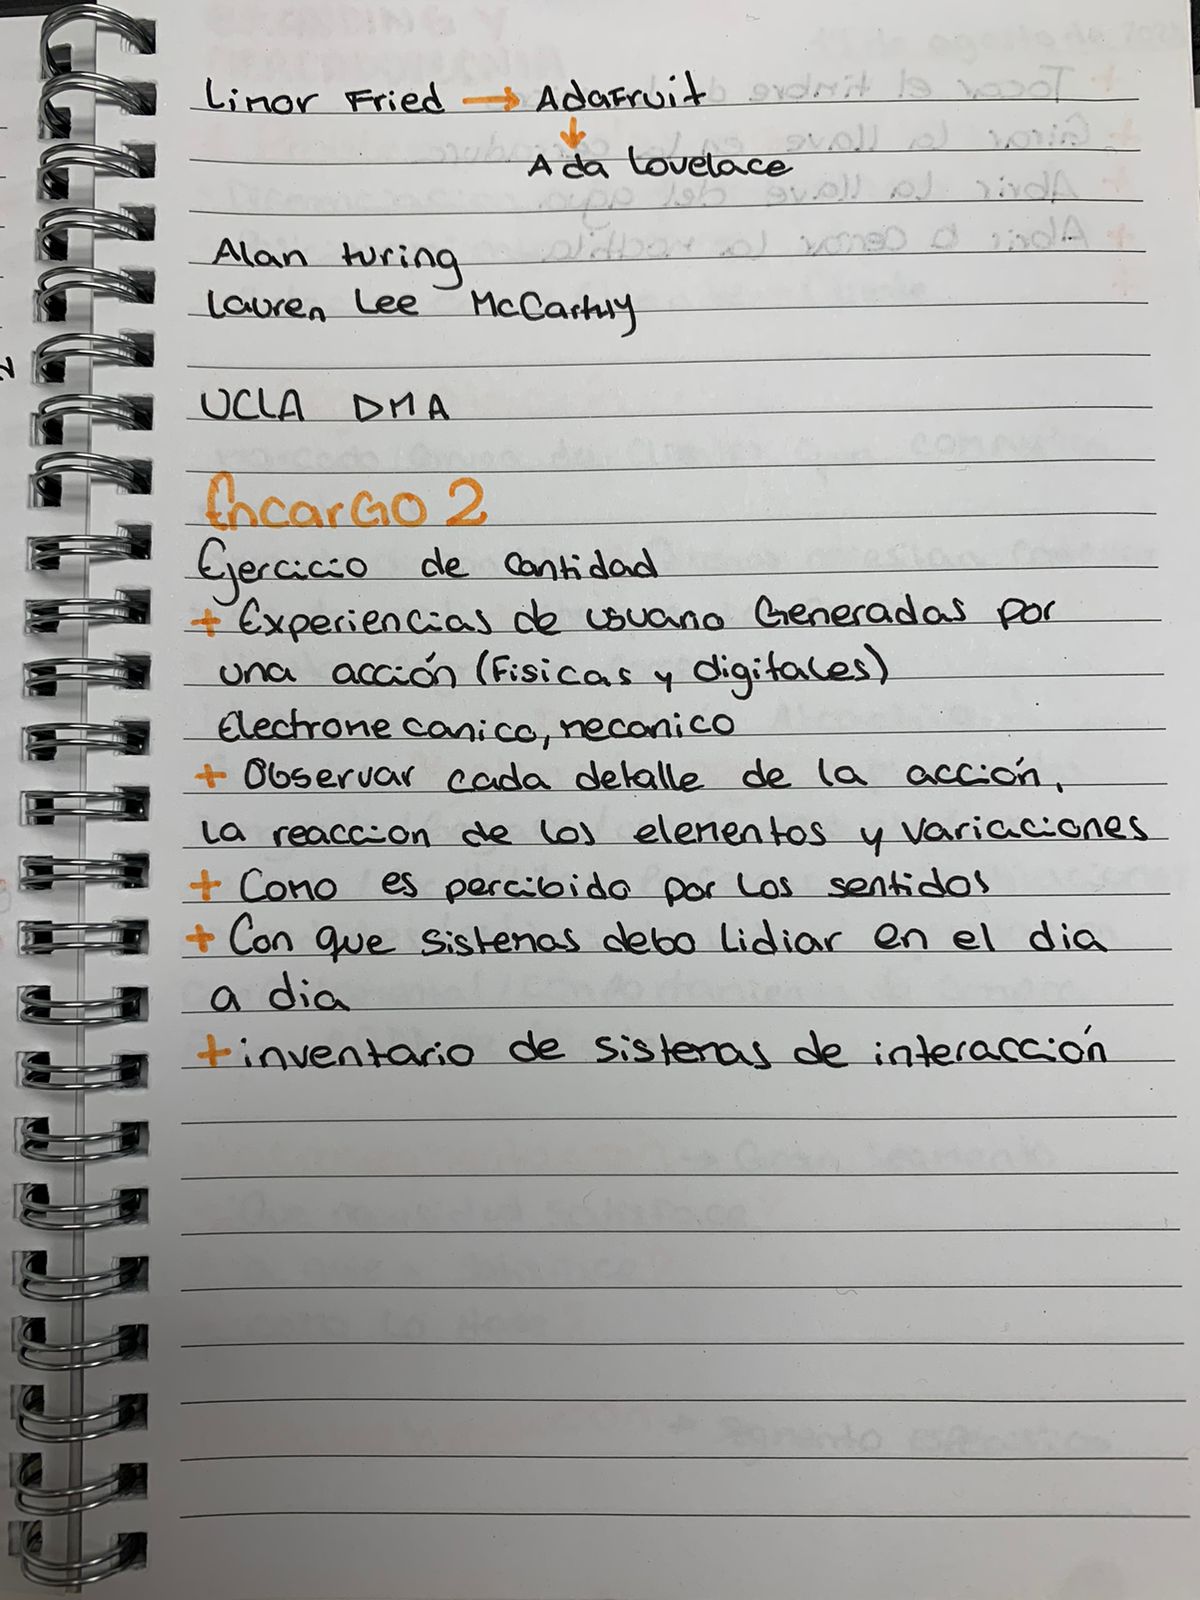 Limor Fried → Adafruit
↓
Ada Lovelace
Alan turing
Lauren Lee McCarthy
UCLA DMA
Encargo 2
Ejercicio de cantidad
+ Experiencias de usuario Generadas por
una acción (Fisicas y digitales)
Electromecanico, mecanico
+ Observar cada detalle de la acción,
La reaccion de los elementos y variaciones
+ Como es percibido por los sentidos
+ Con que sistemas debo lidiar en el dia
a dia
+ inventario de sistemas de interacción